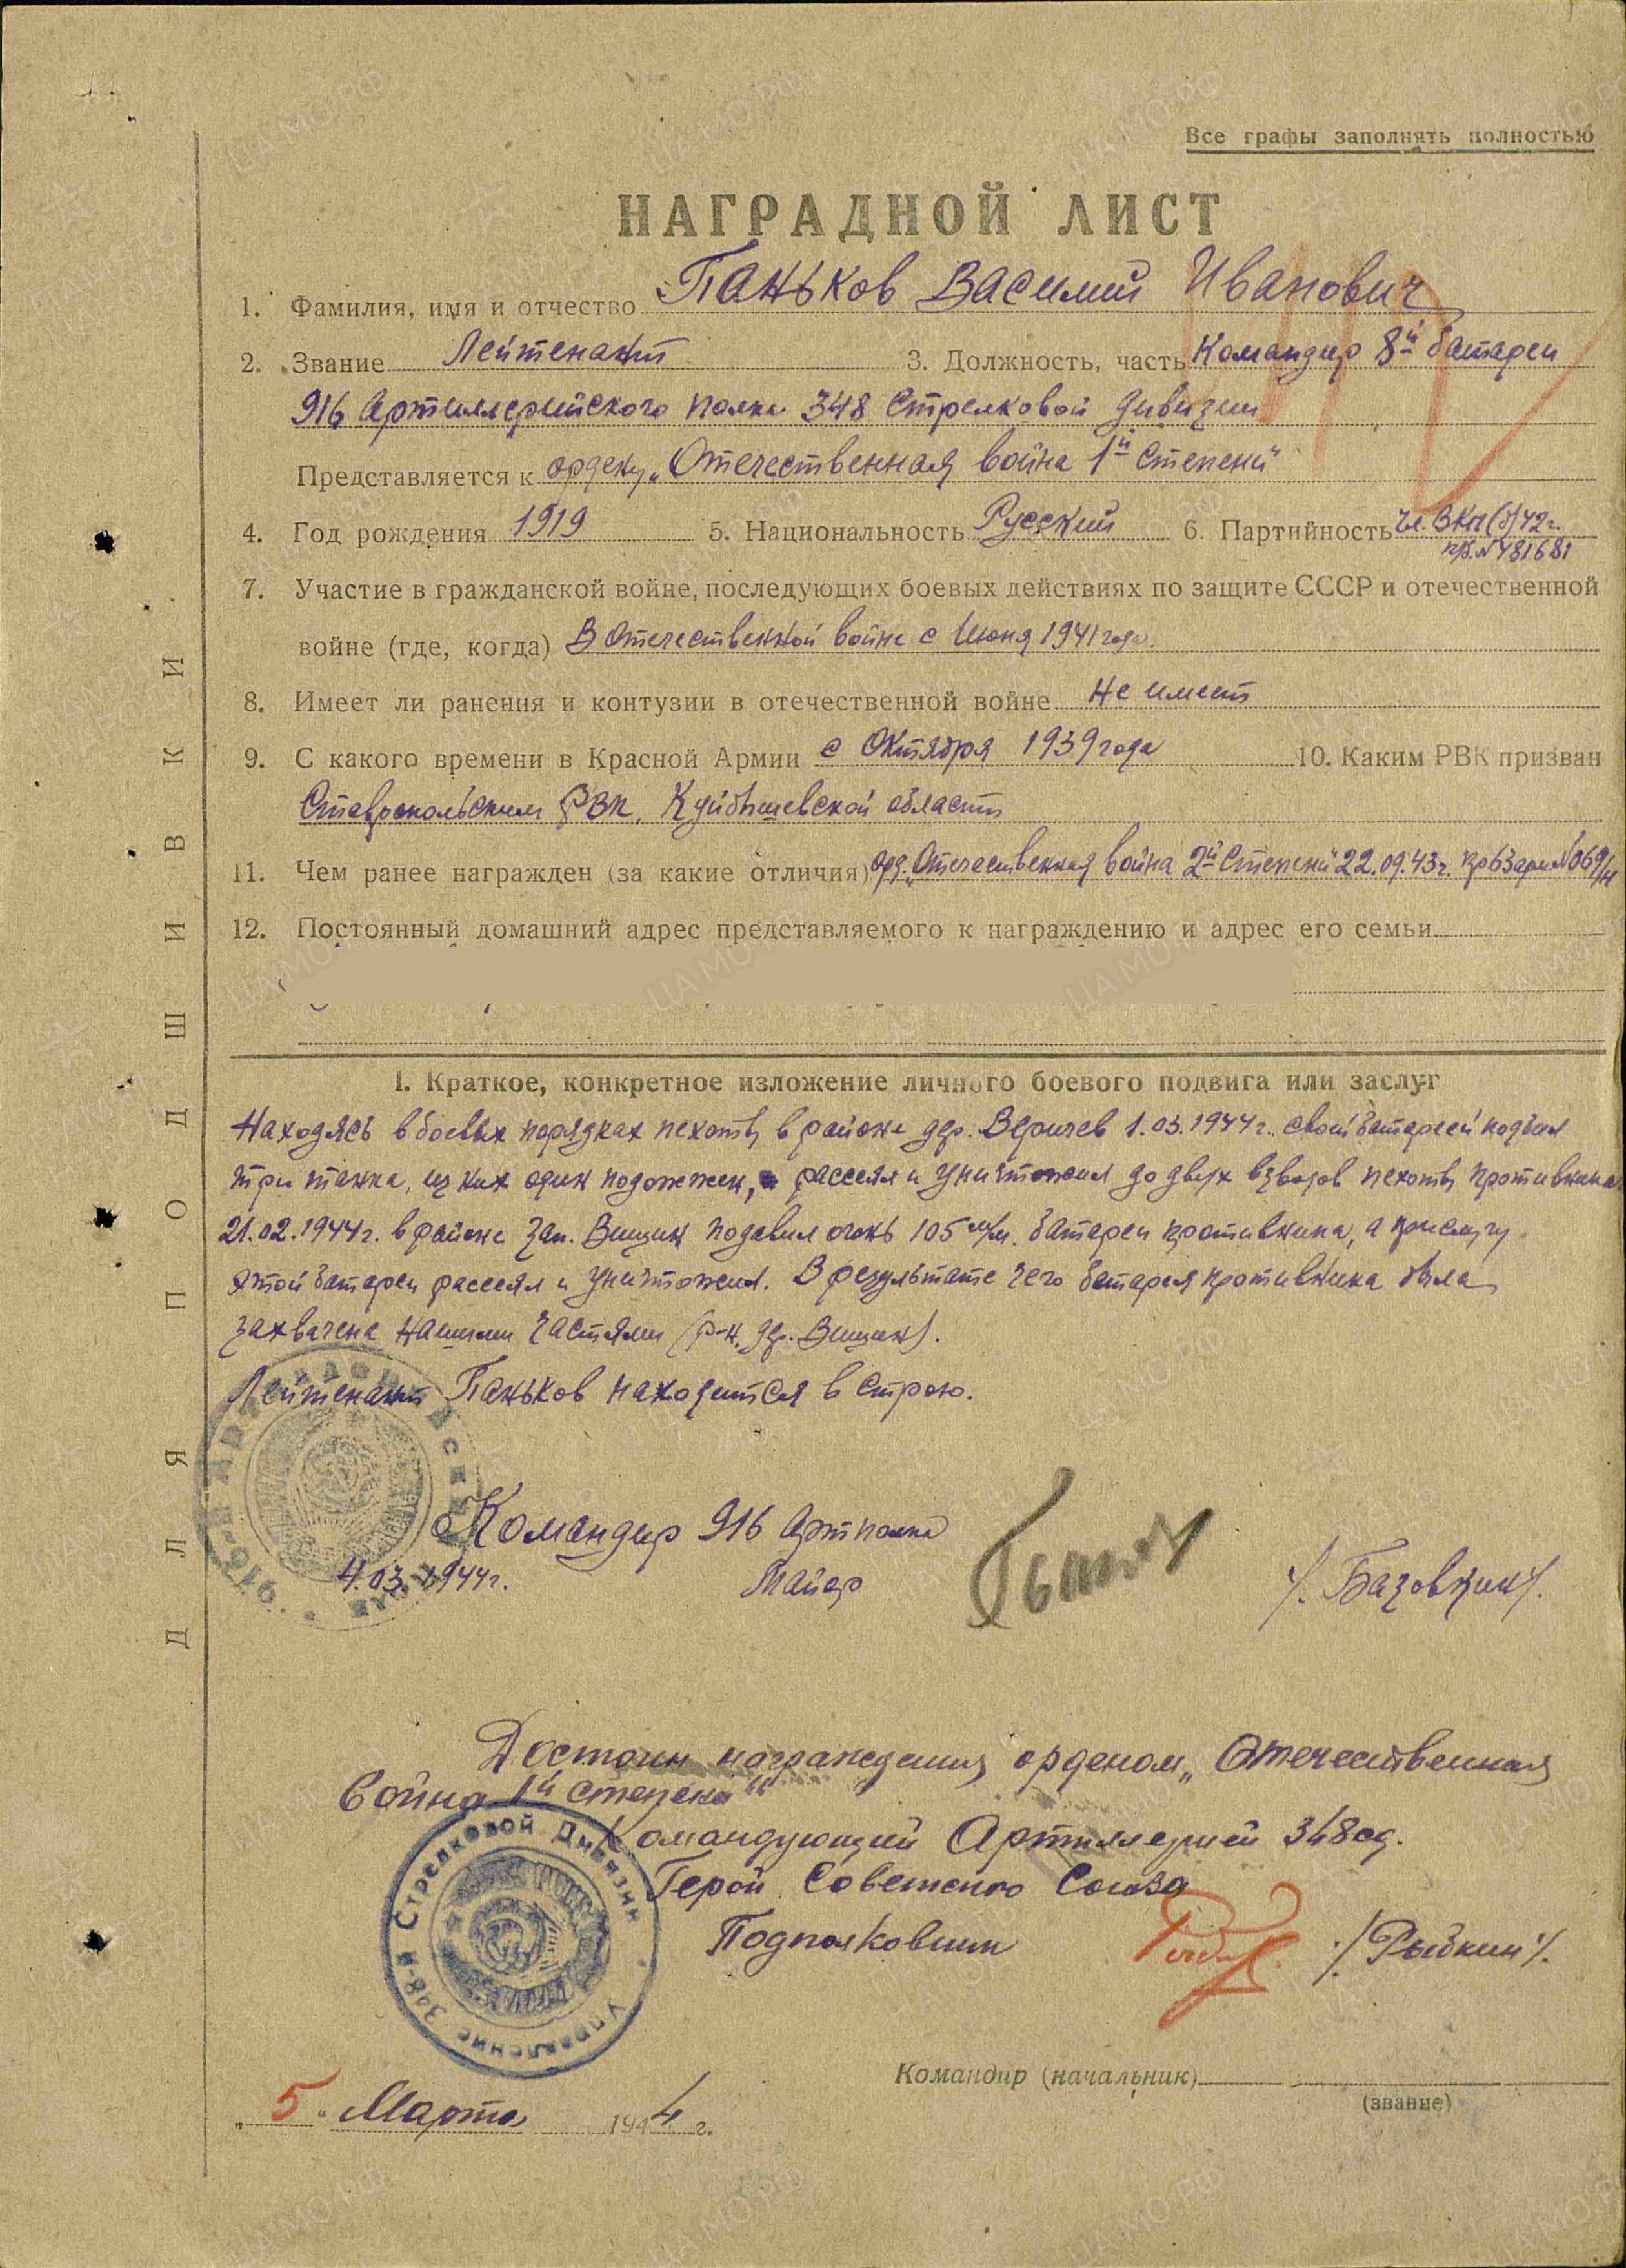 Все графы заполнять полностью
НАГРАДНОЙ ЛИСТ
1. Фамилия, имя и отчество Паньков Василий Иванович
2. Звание Лейтенант 3. Должность, часть Командир 8й батареи
916 Артиллерийского полка 348 Стрелковой дивизии
Представляется к ордену „Отечественная война 1й степени"
4. Год рождения 1919 5. Национальность Русский 6. Партийность Чл. ВКП(б) 42г.
п/б. № 4481681
7. Участие в гражданской войне, последующих боевых действиях по защите СССР и отечественной
войне (где, когда) В Отечественной войне с Июня 1941 года.
8. Имеет ли ранения и контузии в отечественной войне Не имеет
9. С какого времени в Красной Армии с Октября 1939 года 10. Каким РВК призван
Ставропольским РВК, Куйбышевской области
11. Чем ранее награжден (за какие отличия) орд. „Отечественная война 2й Степени" 22.09.43г. пр 63 арм №069/н
12. Постоянный домашний адрес представляемого к награждению и адрес его семьи
I. Краткое, конкретное изложение личного боевого подвига или заслуг
Находясь в боевых порядках пехоты в районе дер. Веричев 1.03.1944г. своей батареей подбил
три танка, из них один подожжен, рассеял и уничтожил до двух взводов пехоты противника
21.02.1944г. в районе зап. Вищин подавил огонь 105 м/м. батареи противника, а прислугу
этой батареи рассеял и уничтожил. В результате чего батарея противника была
захвачена нашими частями (р-н. дер. Вищин).
Лейтенант Паньков находится в строю.
Командир 916 Артполка
4.03.1944г. Майор /. Базовкин /.
Достоин награждения орденом „Отечественная
война 1й степени"
Командующий Артиллерией 348 сд.
Герой Советского Союза
Подполковник /. Рыбкин /.
Управление 348-й Стрелковой Дивизии
Командир (начальник)
(звание)
„5" Марта 1944 г.
ДЛЯ ПОДШИВКИ
ЦАМО.РФ